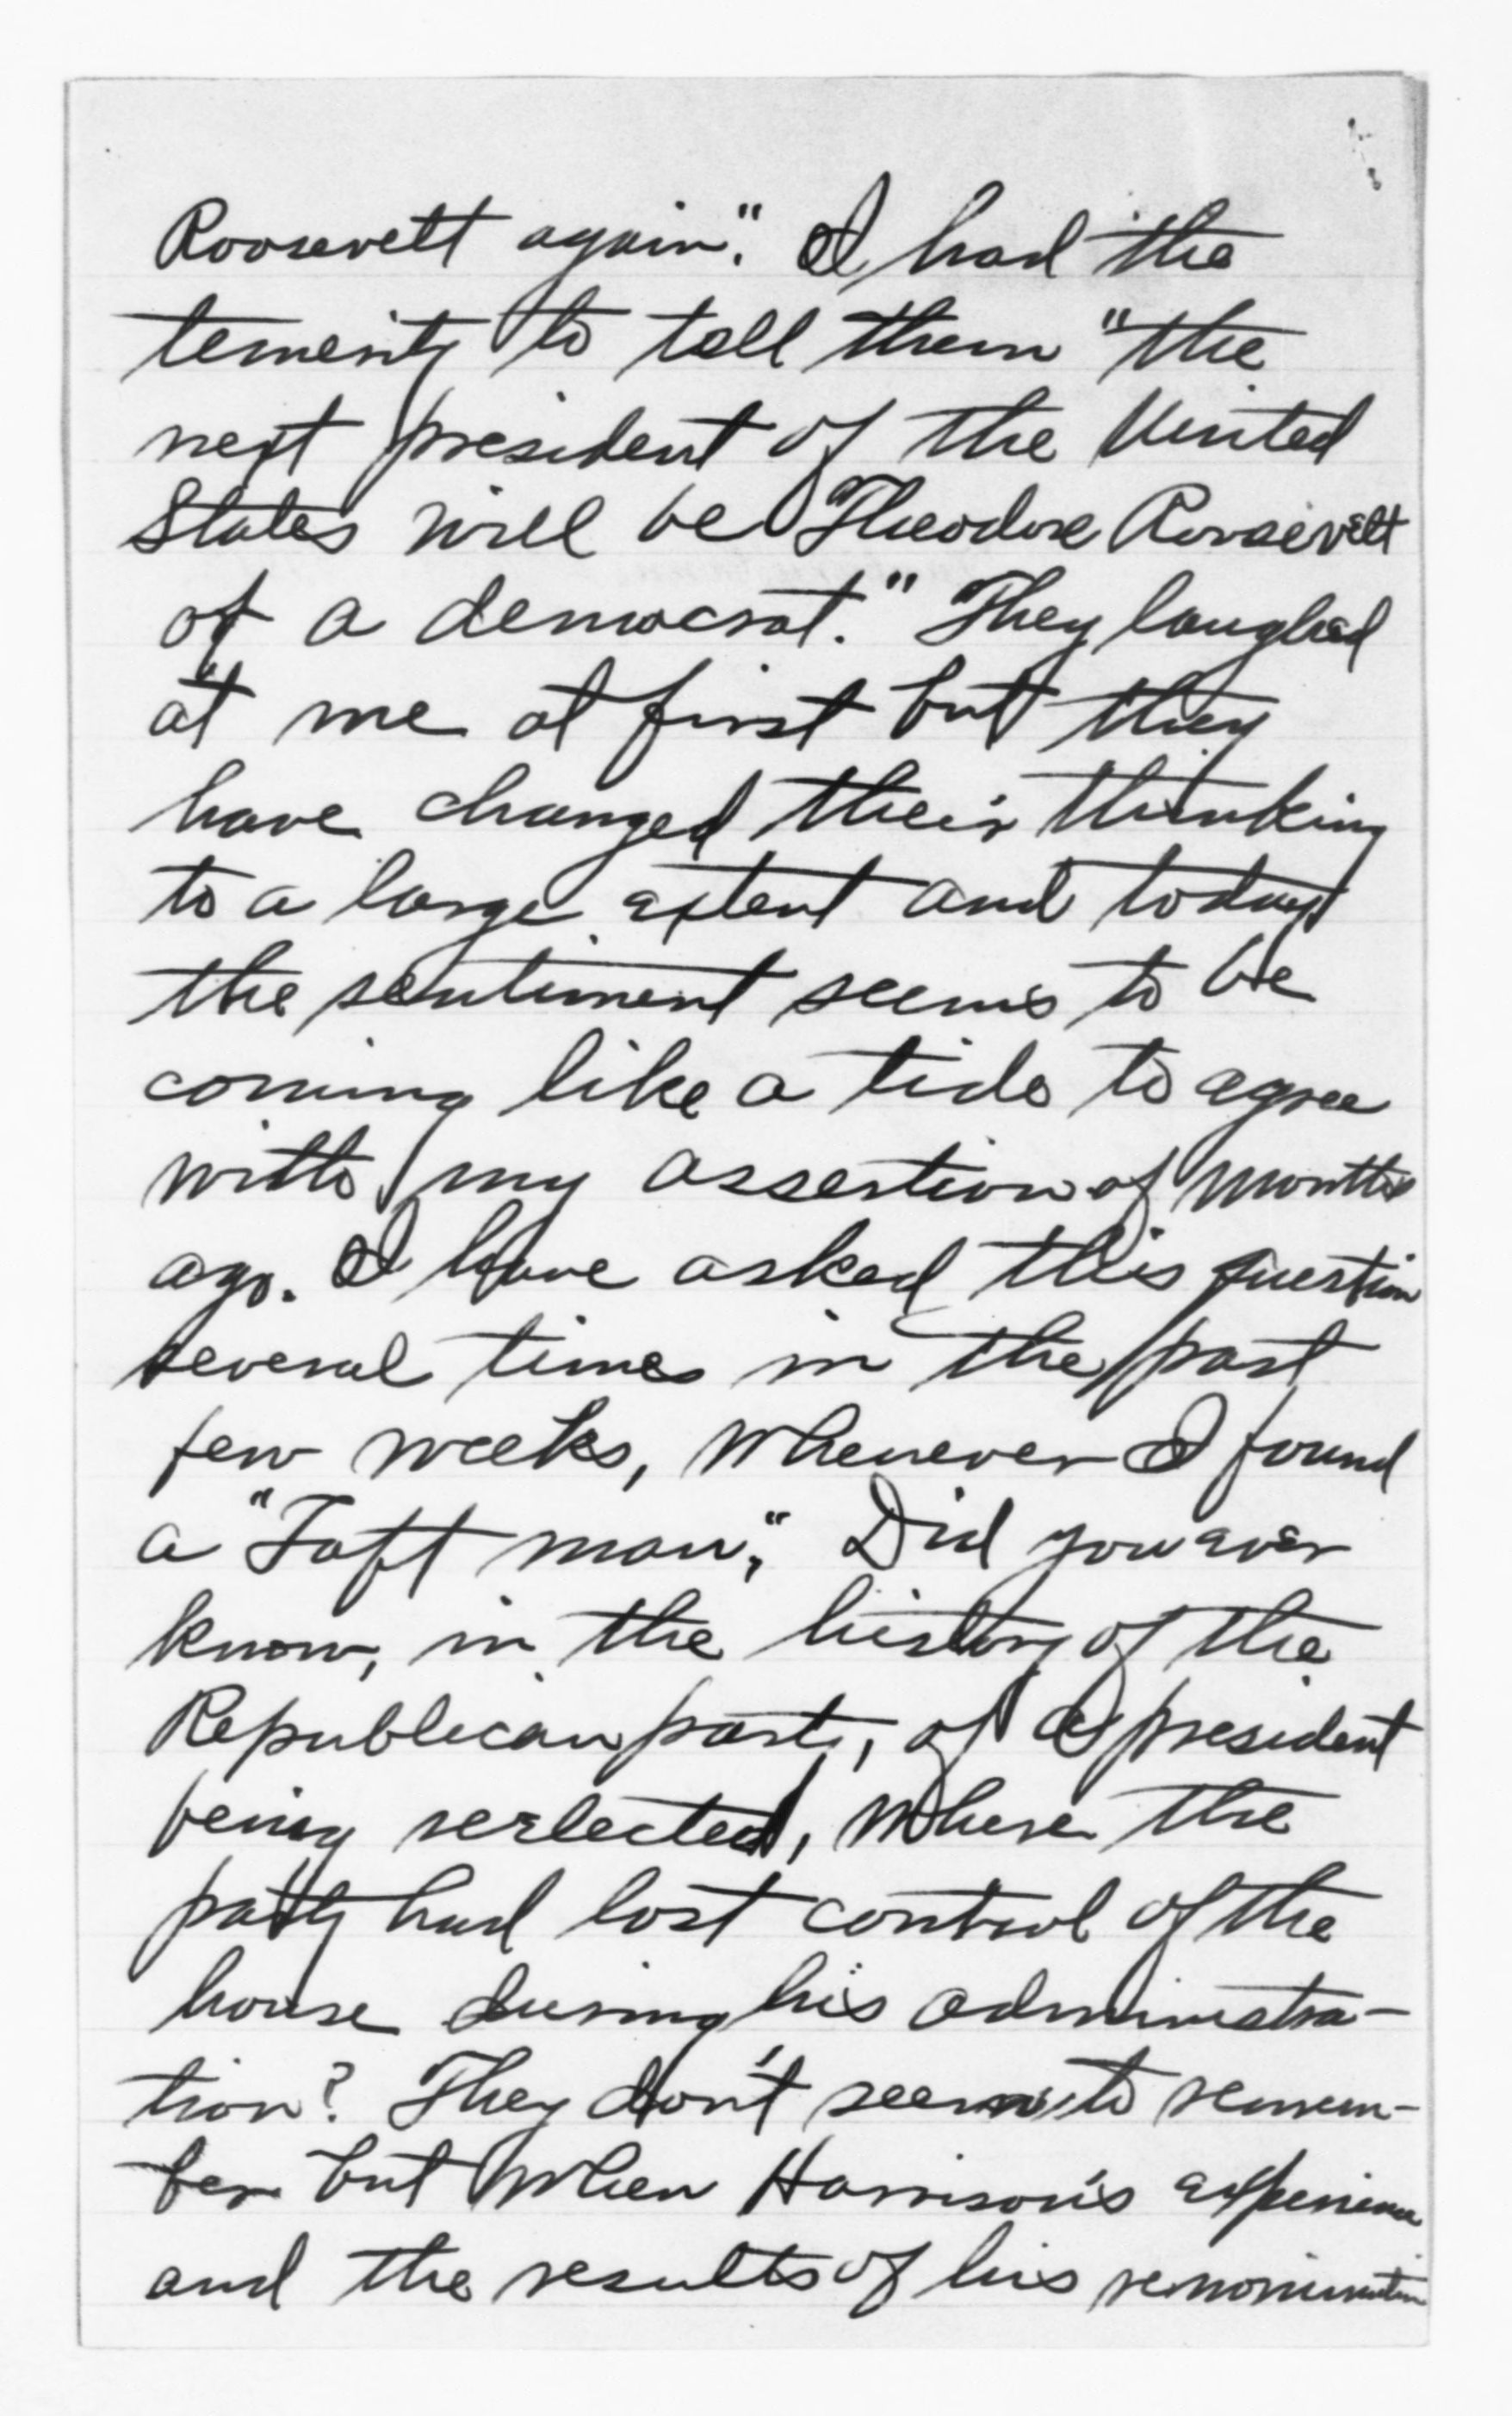 Roosevelt again". I had the
temerity to tell them "the
next president of the United
States will be Theodore Roosevelt
of a democrat." They laughed
at me at first but they
have changed their thinking
to a large extent and today
the sentiment seems to be
coming like a tide to agree
with my assertion of months
ago. I have asked this question
several times in the past
few weeks, whenever I found
a "Taft man", Did you ever
know, in the history of the
Republican party, of a president
being reelected, where the
party had lost control of the
house during his administra-
tion? They don't seem to remem-
ber but when Harrison's experience
and the results of his renomination